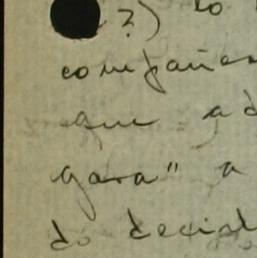 ?) lo
compañe
que ad
gara" a
do decid